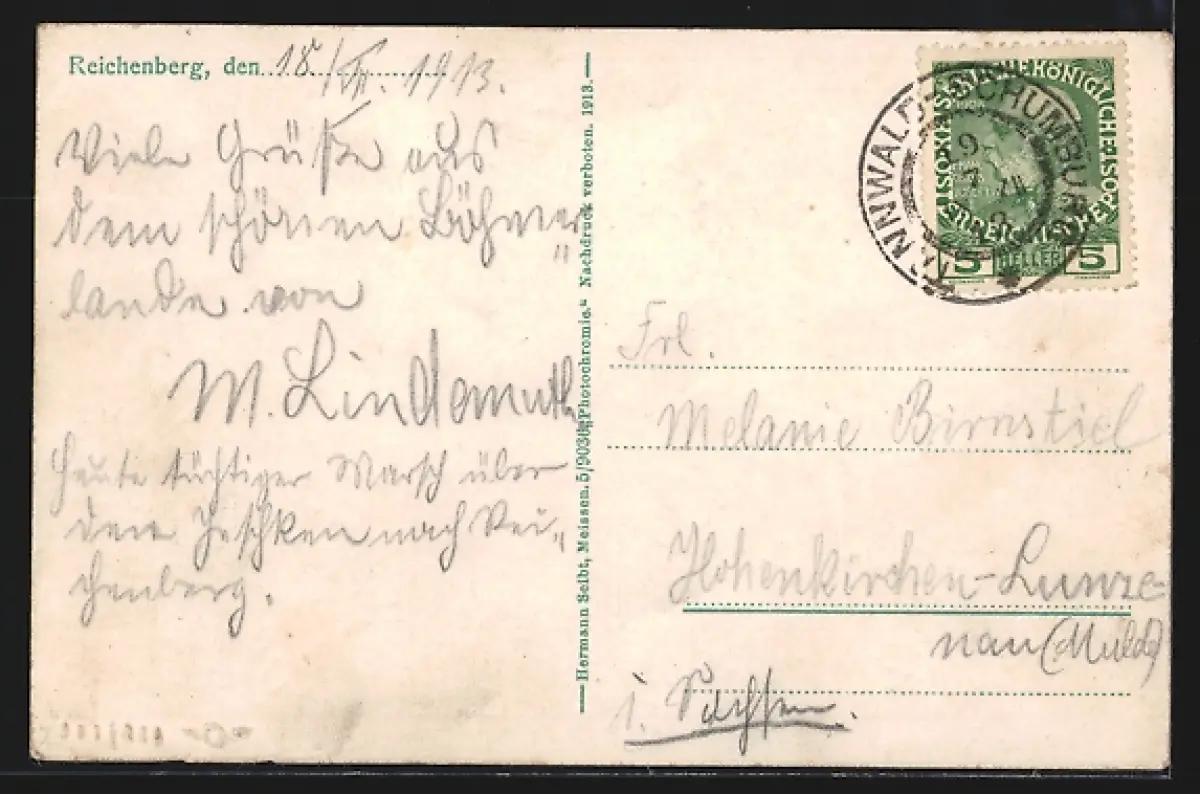 Reichenberg, den 18./VII. 1913.
Viele Grüße aus
dem schönen Böhmer-
lande von
M. Lindemuth
Heute tüchtiger Marsch über
den Jeschken nach Rei-
chenberg.
Hermann Seibt, Meissen. 5/9030 „Photochromie.“ Nachdruck verboten. 1913.
TANNWALD-SCHUMBURG
KAISERLICHE KÖNIGLICHE ÖSTERREICHISCHE POST
5 HELLER 5
Frl.
Melanie Birnstiel
Hohenkirchen-Lunze-
nau (Mulde)
i. Sachsen.